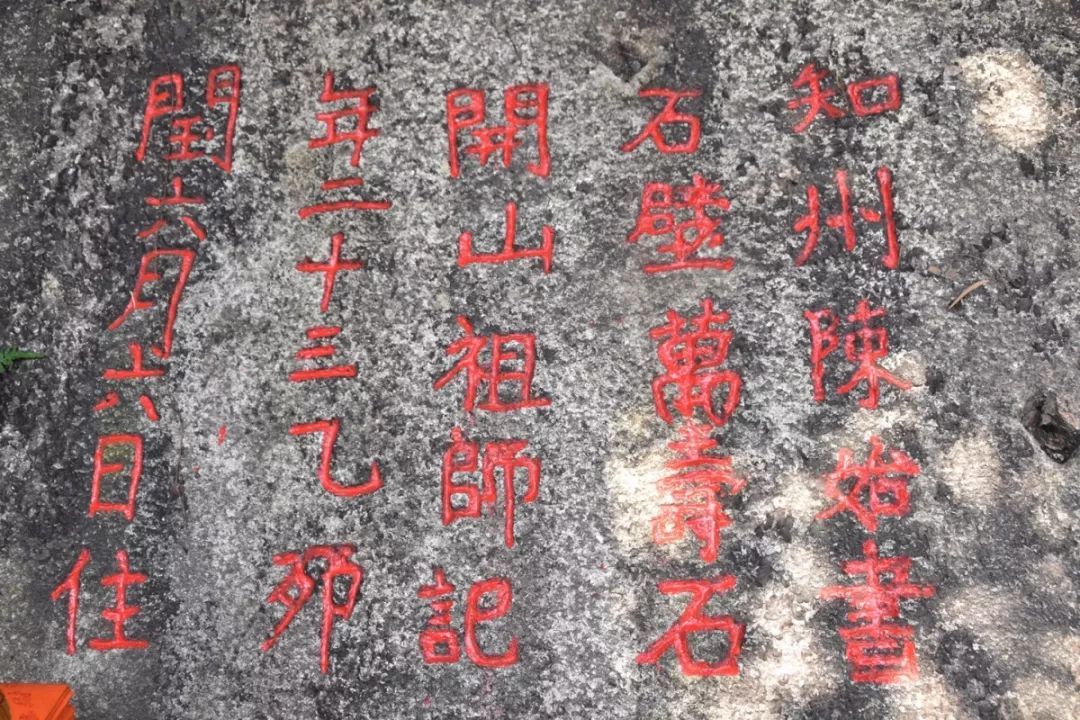 知州陳始書
石壁萬壽石
開山祖師記
年二十三乙夘
閠六月六日住